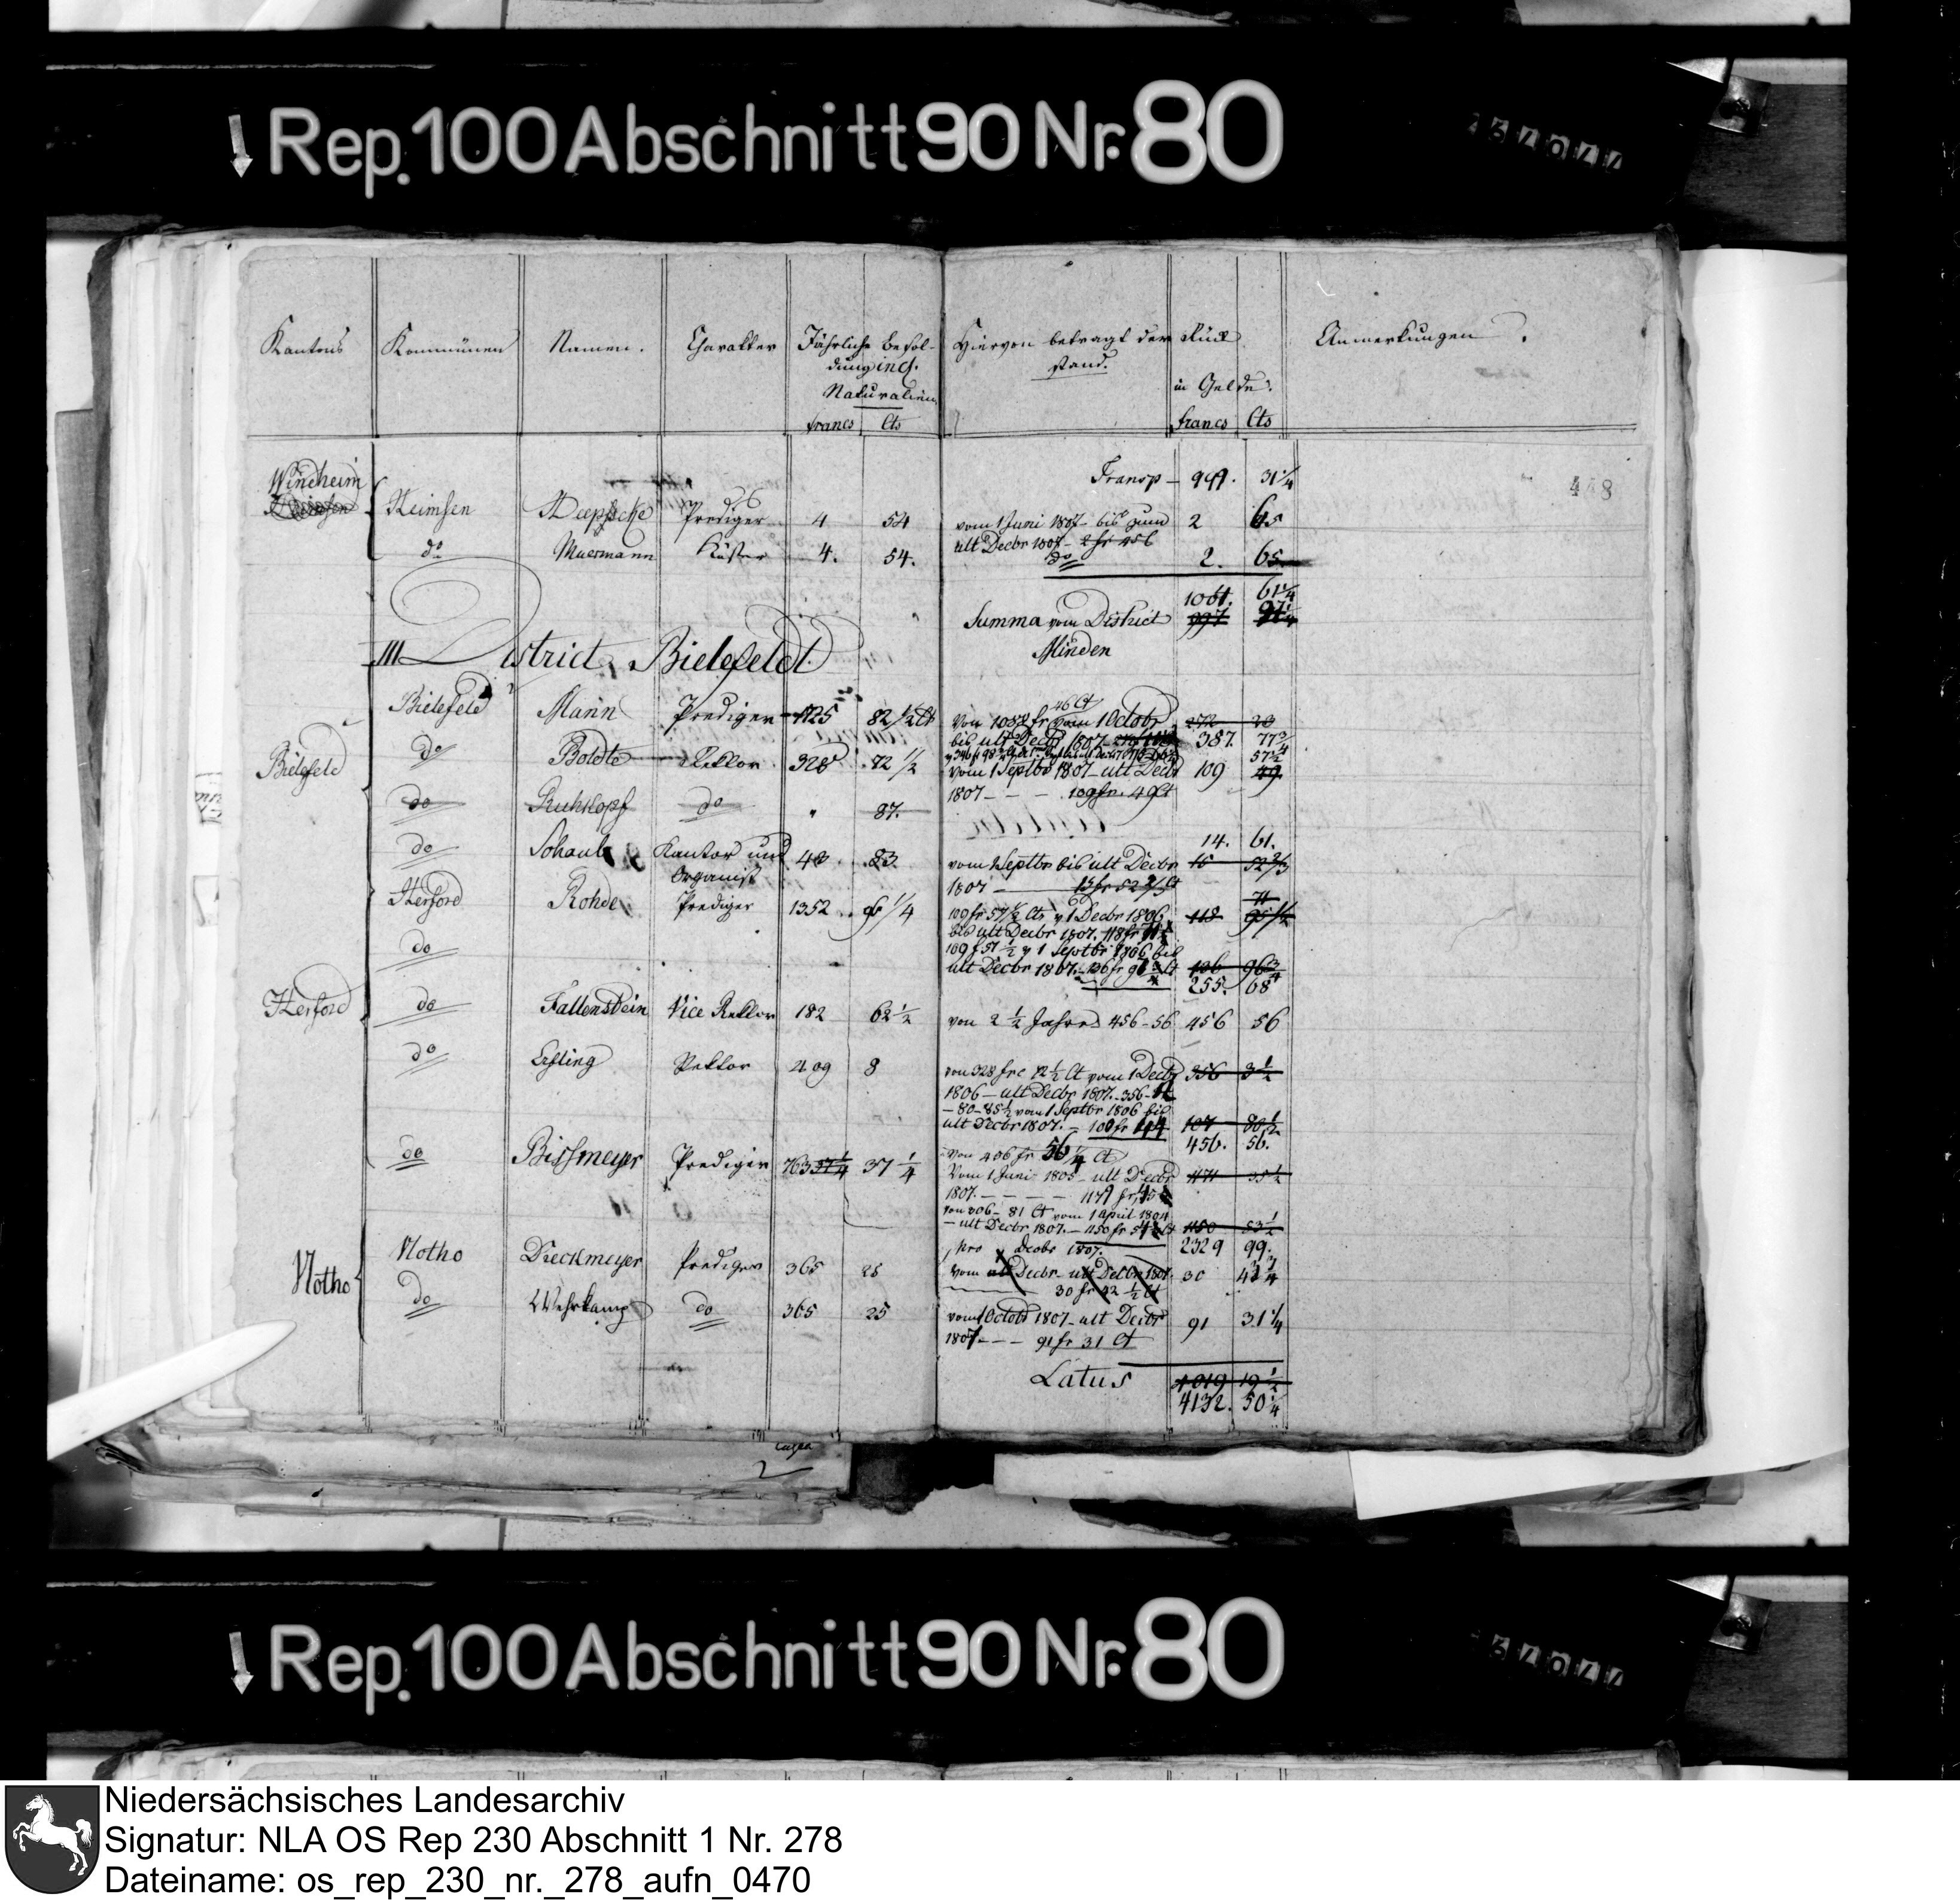 Rep. 100 Abschnitt 90 Nr. 80
Kantons Kommünen Namen. Charakter Jährliche Besol- Hiervon betragt der Rück Anmerkungen.
dung incl. stand.
Naturalien in Gelde.
francs Cts francs Cts
Windheim Transp — 31 1/4
448
Heimsen Prediger 4 54 vom 1 Juni 1807 bis zum 2 65
ult Decbr 1807
do Muermann Küster 4. 54. do 2. 65
61 1/4
Summa vom District 997
Minden
III District Bielefeldt
Bielefeld Mann Prediger 1725 82 1/2 46 Ct
vom 1 Octobr 272
bis ult Decbr 1807 387. 77 3/4
Bielefeld
do Boldte Rektor 328 72 1/2 57 1/2
vom 1 Septbr 1807 ult Decbr 109 49
1807 — — 109 fr. 49 Ct
do Ruhkopf do " 87.
14. 61.
do Schaub Kantor und 43 83 vom 1 Septbr bis ult Decbr 15 52 2/3
Organist 1807 — 15 fr 52 2/3 Ct
Herford Rohde Prediger 1352 109 fr 57 1/2 Cts v 1 Decbr 1806 118 95 1/2
bis ult Decbr 1807. 118 fr
do 109 f 57 1/2 v 1 Septbr 1806 bis
ult Decbr 1807. 136 fr 96 136 96 3/4
255. 68
Herford
do Fallenstein Vice Rektor 182 62 1/2 von 2 1/2 Jahre 456 - 56 456 56
do Rektor 409 8 von 328 frc 12 1/2 Ct vom 1 Decbr 356 3 1/2
1806 — ult Decbr 1807. 356
— 80 - 85 1/2 vom 1 Septbr 1806 bis
ult Decbr 1807. — 100 fr 44 107 80 1/2
456. 56.
do Bissmeyer Prediger 763 57 1/4 37 1/4 von 456 fr 56 1/4 Ct
Vom 1 Juni 1805 — ult Decbr 35 1/2
1807. — — — —
von 306 - 81 Ct vom 1 April 1804
— ult Decbr 1807. — 1150 fr 1150 53 1/2
pro Decbr 1807. 2329 99.
Vlotho Vlotho Dieckmeyer Prediger 365 25 vom Decbr ult Decbr 1807. 30
30 fr 42 1/2 Ct
do Wehrkamp do 365 25 vom 1 Octobr 1807 — ult Decbr 91 31 1/4
1807. — — 91 fr 31 Ct
Latus 4019 19 1/2
4132. 50 1/4
Rep. 100 Abschnitt 90 Nr. 80
Niedersächsisches Landesarchiv
Signatur: NLA OS Rep 230 Abschnitt 1 Nr. 278
Dateiname: os_rep_230_nr._278_aufn_0470